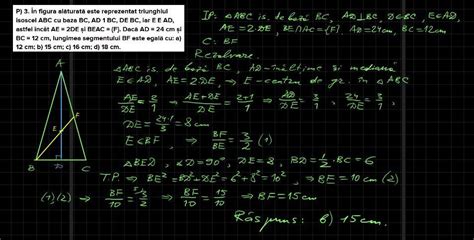 P) 3. În figura alăturată este reprezentat triunghiul
isoscel ABC cu baza BC, AD 1 BC, DE BC, iar E E AD,
astfel încât AE = 2DE și BEAC = {F}. Dacă AD = 24 cm și
BC = 12 cm, lungimea segmentului BF este egală cu: a)
12 cm; b) 15 cm; c) 16 cm; d) 18 cm.
A
F
E
B
D
C
IP: △ABC is. de bază BC, AD⊥BC, D∈BC, E∈AD,
AE=2DE, BE∩AC={F} AD=24cm, BC=12cm
C: BF
Rezolvare
△ABC is. de bază BC, AD-înălțime și mediană
E∈AD, AE=2DE, ⇒ E-centru de gr. în △ABC
AE/DE = 2/1 ⇒ AE+DE/DE = 2+1/1 ⇒ AD/DE = 3/1, 24/DE = 3/1,
DE = 24·1/3 = 8cm
E∈BF, ⇒ BF/BE = 3/2 (1)
△BED, ∡D=90°, DE=8, BD=1/2·BC=6
T.P. ⇒ BE²=BD²+DE²=6²+8²=10², ⇒BE=10cm (2)
(1),(2) ⇒ BF/10 = 3/2 ⇒ BF/10 = 15/10 ⇒ BF=15cm
Răspuns: b) 15cm.